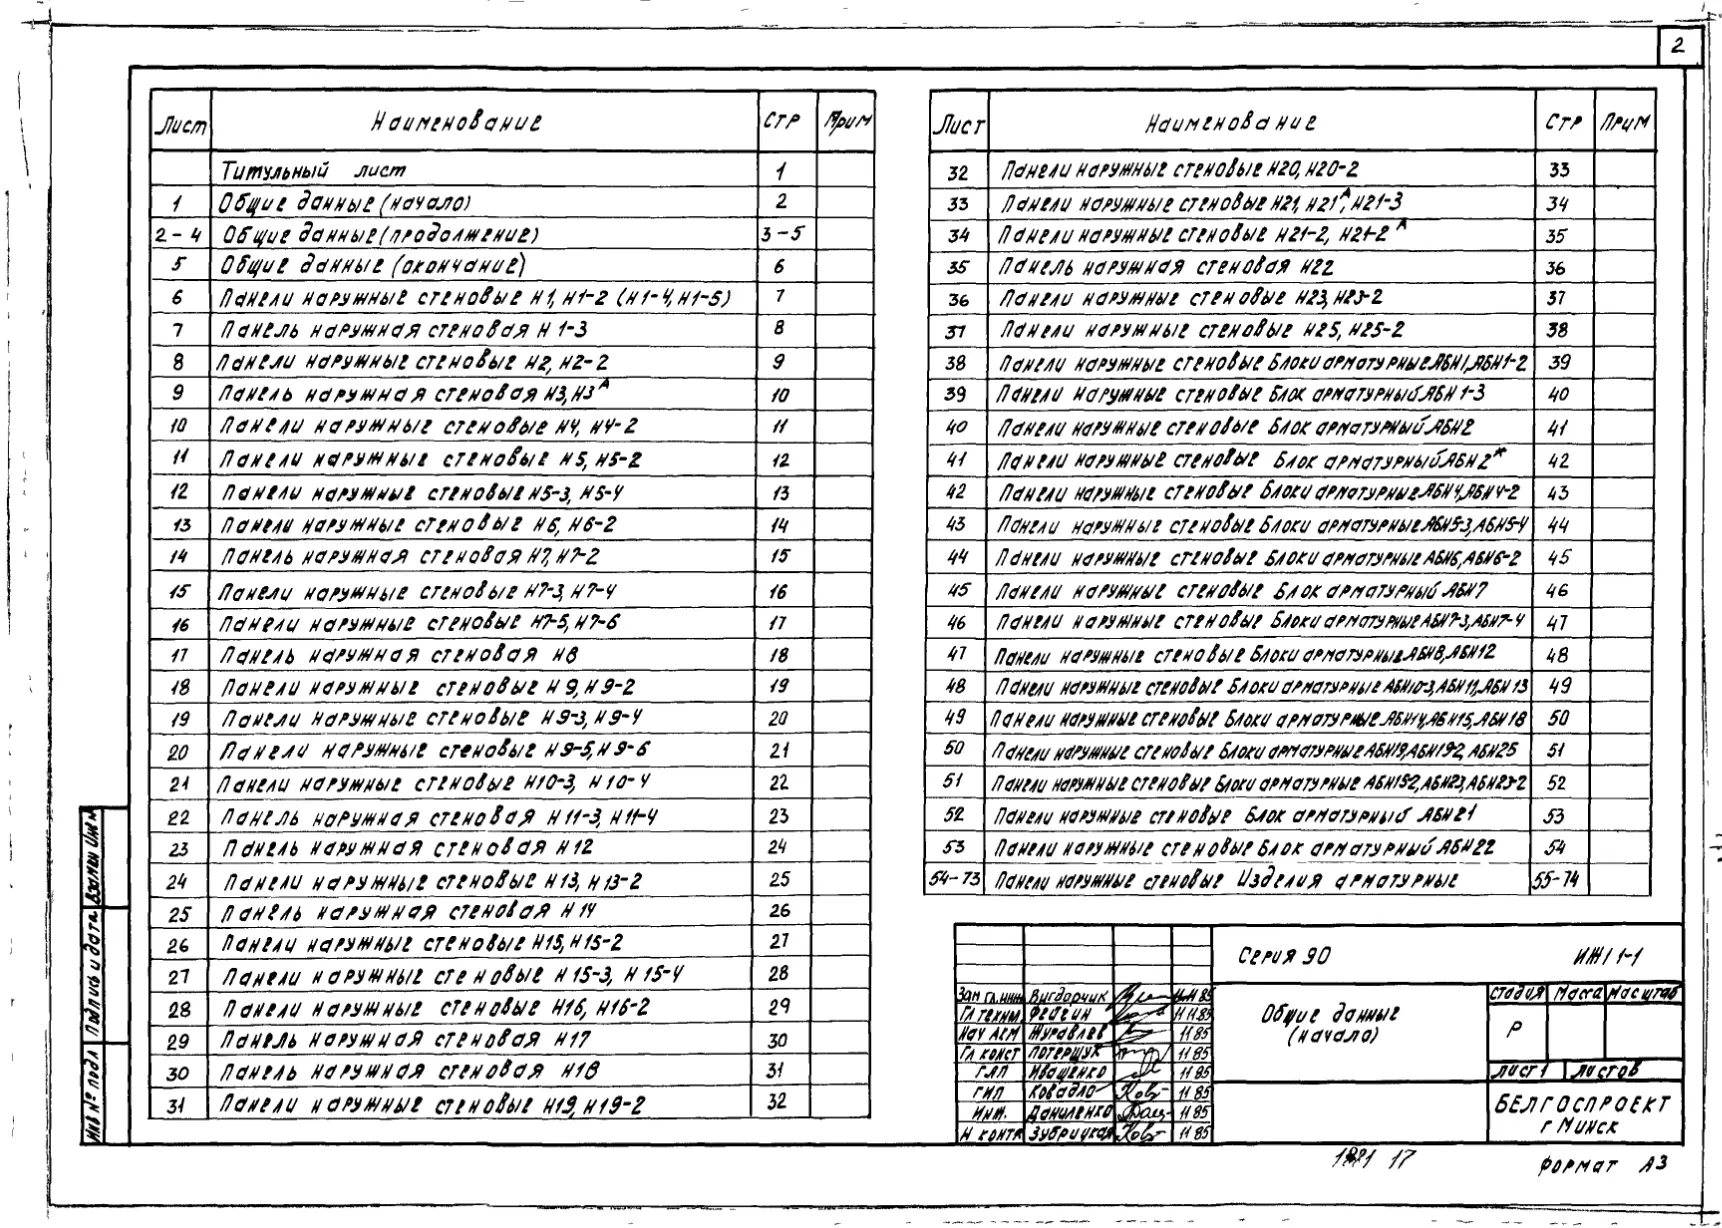 2
Лист Наименование Стр Прим
Титульный лист 1
1 Общие данные (начало) 2
2-4 Общие данные (продолжение) 3-5
5 Общие данные (окончание) 6
6 Панели наружные стеновые Н1, Н1-2 (Н1-4, Н1-5) 7
7 Панель наружная стеновая Н1-3 8
8 Панели наружные стеновые Н2, Н2-2 9
9 Панель наружная стеновая Н3, Н3А 10
10 Панели наружные стеновые Н4, Н4-2 11
11 Панели наружные стеновые Н5, Н5-2 12
12 Панели наружные стеновые Н5-3, Н5-4 13
13 Панели наружные стеновые Н6, Н6-2 14
14 Панель наружная стеновая Н7, Н7-2 15
15 Панели наружные стеновые Н7-3, Н7-4 16
16 Панели наружные стеновые Н7-5, Н7-6 17
17 Панель наружная стеновая Н8 18
18 Панели наружные стеновые Н9, Н9-2 19
19 Панели наружные стеновые Н9-3, Н9-4 20
20 Панели наружные стеновые Н9-5, Н9-6 21
21 Панели наружные стеновые Н10-3, Н10-4 22
22 Панель наружная стеновая Н11-3, Н11-4 23
23 Панель наружная стеновая Н12 24
24 Панели наружные стеновые Н13, Н13-2 25
25 Панель наружная стеновая Н14 26
26 Панели наружные стеновые Н15, Н15-2 27
27 Панели наружные стеновые Н15-3, Н15-4 28
28 Панели наружные стеновые Н16, Н16-2 29
29 Панель наружная стеновая Н17 30
30 Панель наружная стеновая Н18 31
31 Панели наружные стеновые Н19, Н19-2 32
Лист Наименование Стр Прим
32 Панели наружные стеновые Н20, Н20-2 33
33 Панели наружные стеновые Н21, Н21А, Н21-3 34
34 Панели наружные стеновые Н21-2, Н21-2А 35
35 Панель наружная стеновая Н22 36
36 Панели наружные стеновые Н23, Н23-2 37
37 Панели наружные стеновые Н25, Н25-2 38
38 Панели наружные стеновые Блоки арматурные АБН1, АБН1-2 39
39 Панели наружные стеновые Блок арматурный АБН1-3 40
40 Панели наружные стеновые Блок арматурный АБН2 41
41 Панели наружные стеновые Блок арматурный АБН2* 42
42 Панели наружные стеновые Блоки арматурные АБН4, АБН4-2 43
43 Панели наружные стеновые Блоки арматурные АБН5-3, АБН5-4 44
44 Панели наружные стеновые Блоки арматурные АБН6, АБН6-2 45
45 Панели наружные стеновые Блок арматурный АБН7 46
46 Панели наружные стеновые Блоки арматурные АБН7-3, АБН7-4 47
47 Панели наружные стеновые Блоки арматурные АБН8, АБН12 48
48 Панели наружные стеновые Блоки арматурные АБН10-3, АБН11, АБН13 49
49 Панели наружные стеновые Блоки арматурные АБН14, АБН15, АБН18 50
50 Панели наружные стеновые Блоки арматурные АБН19, АБН19-2, АБН25 51
51 Панели наружные стеновые Блоки арматурные АБН15-2, АБН23, АБН23-2 52
52 Панели наружные стеновые Блок арматурный АБН21 53
53 Панели наружные стеновые Блок арматурный АБН22 54
54-73 Панели наружные стеновые Изделия арматурные 55-74
Взамен Инв №
Подпись и дата
Инв № подл
Серия 90 ИЖ11-1
Зам гл. инж Вигдорчик 11 85
Гл техны Фейгин 11 85
Нач АКМ Журавлев 11 85
Гл конст Потерщук 11 85
ГАП Иващенко 11 85
ГИП Ковадло 11 85
Инж. Даниленко 11 85
Н контр Зубрицкая 11 85
Общие данные
(начало)
Стадия Масса Масштаб
Р
Лист 1 Листов
БЕЛГОСПРОЕКТ
г Минск
17
Формат А3